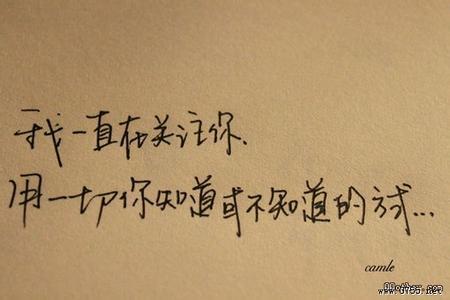 我一直在关注你.
用一切你知道或不知道的方式...
camle
www.6785.net